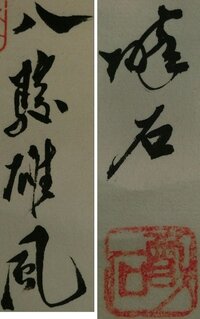 八駿雄風
石